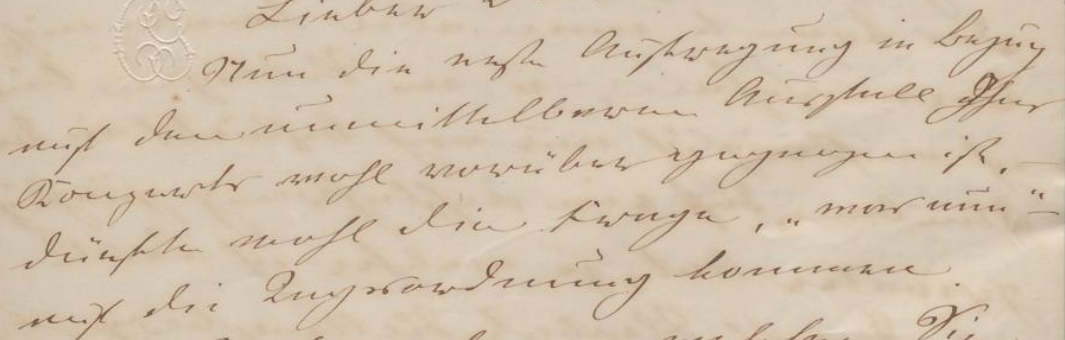 Lieber
Nun die erste Aufregung in Bezug
auf den unmittelbaren Ausfall Ihres
Konzerts wohl vorüber gegangen ist,
dürfte wohl die Frage, „was nun“
auf die Tagesordnung kommen.
Sie